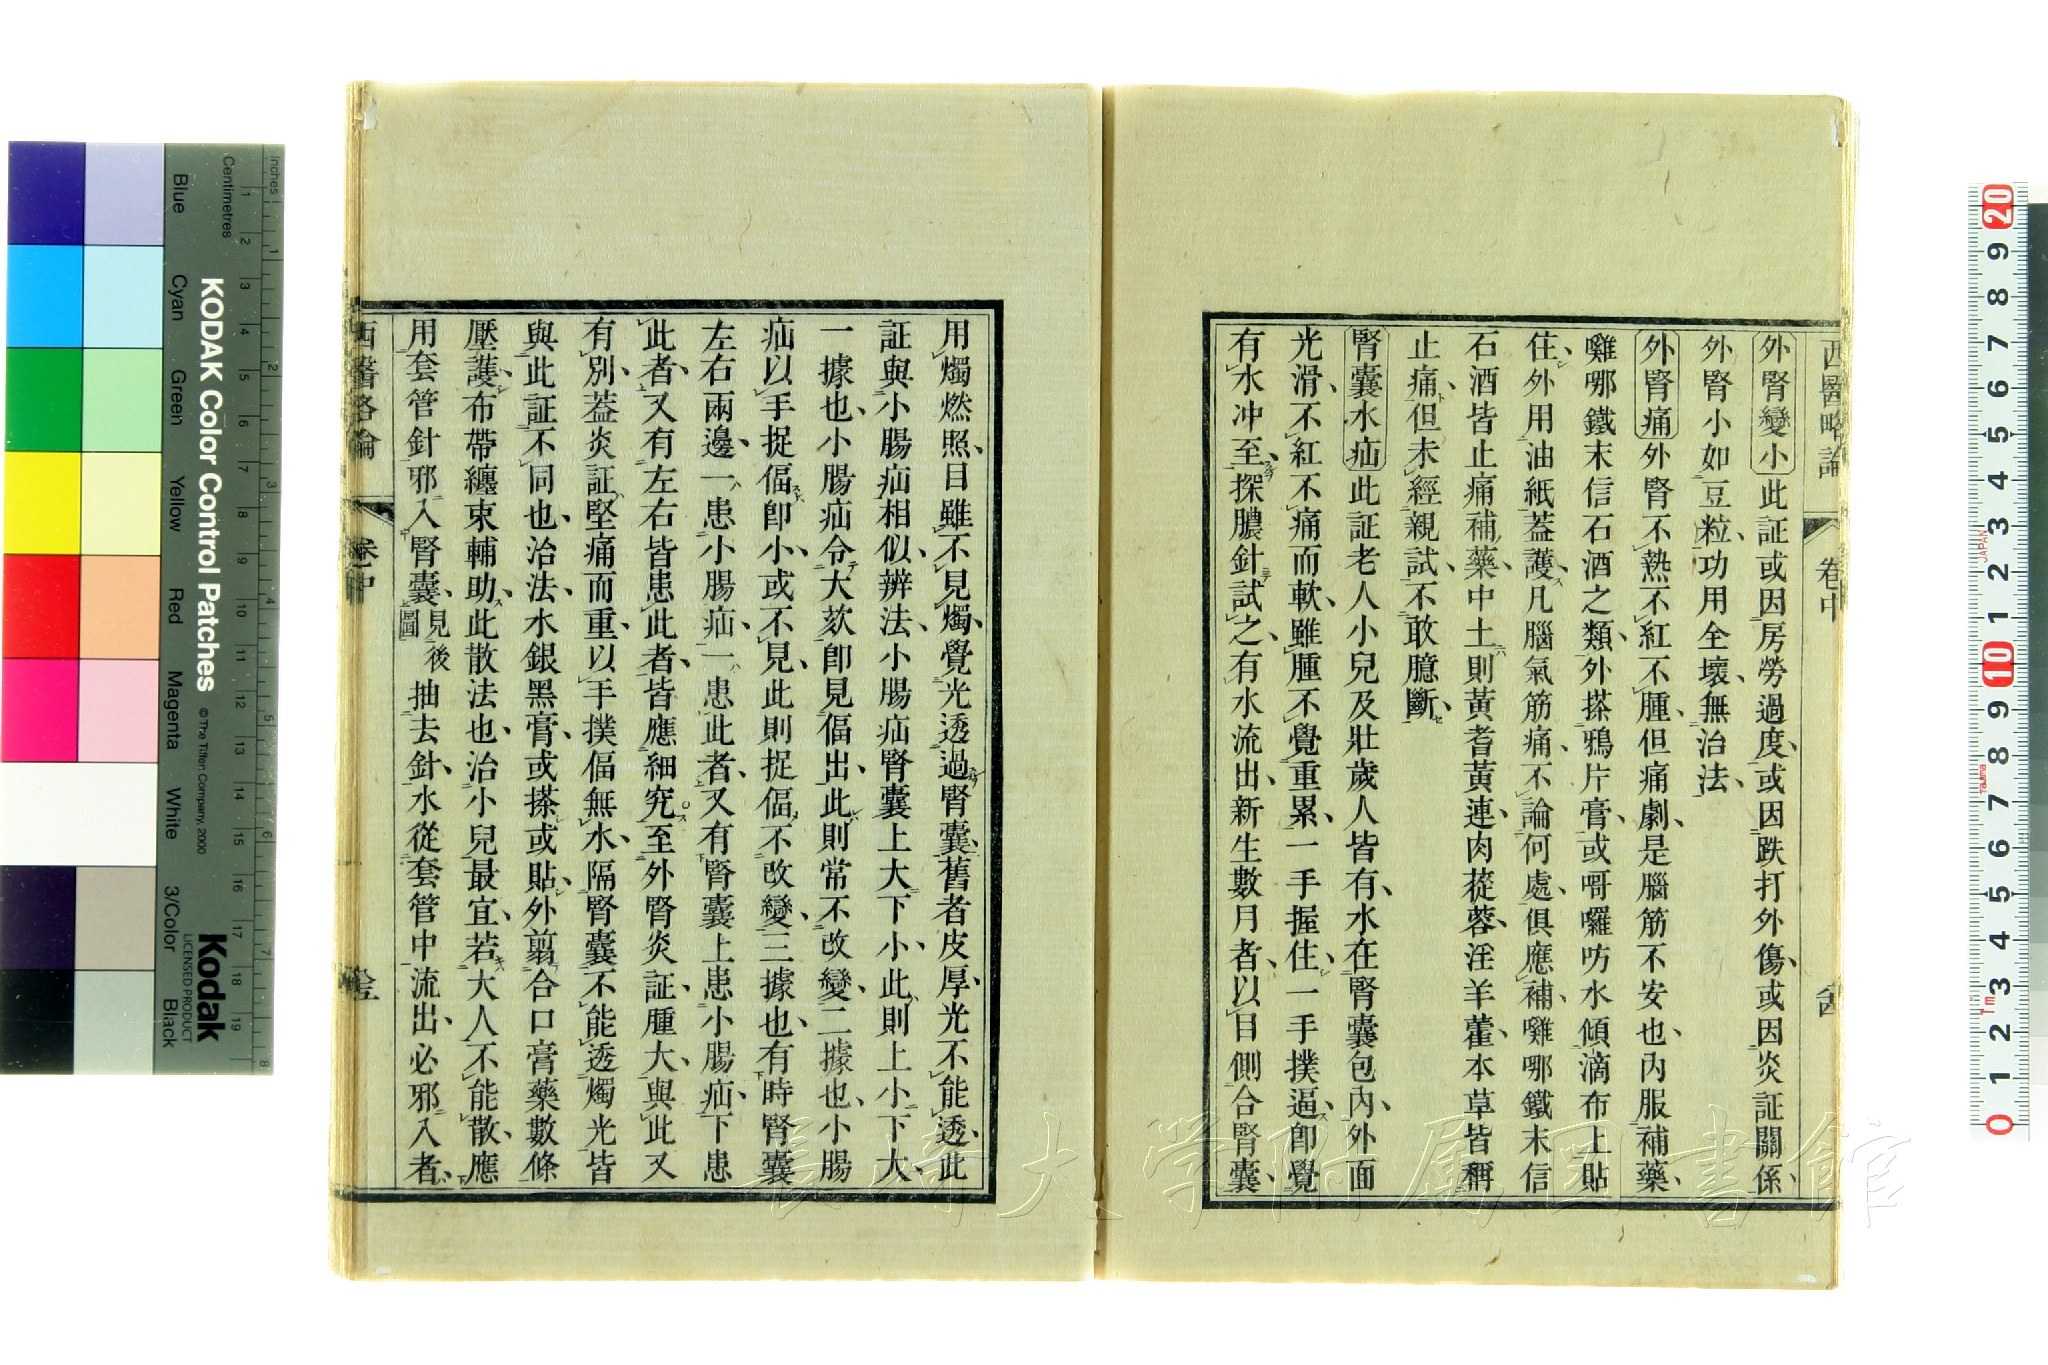 西醫略論 卷中
外腎變小此証或因房勞過度、或因跌打外傷、或因炎証關係、
外腎小如豆粒、功用全壞、無治法、
外腎痛外腎不熱不紅不腫、但痛劇、是腦筋不安也、內服補藥、
雞哪鐵末信石酒之類、外搽鴉片膏、或哥囉吩水傾滴布上貼
住、外用油紙葢護、凡腦氣筋痛、不論何處、俱應補、雞哪鐵末信
石酒皆止痛補藥、中土則黃耆黃連、肉蓯蓉、淫羊藿、本草皆稱
止痛、但未經親試、不敢臆斷、
腎囊水疝此証老人小兒及壯歲人皆有、水在腎囊包內、外面
光滑、不紅不痛而軟、雖腫不覺重累、一手握住、一手撲逼、即覺
有水冲至、探膿針試之、有水流出、新生數月者、以目側合腎囊、
用燭燃照、目雖不見燭、覺光透過腎囊、舊者皮厚、光不能透、此
証與小腸疝相似、辨法、小腸疝腎囊上大下小、此則上小下大、
一據也、小腸疝令大欬即見偪出、此則常不改變、二據也、小腸
疝以手捉偪即小、或不見、此則捉偪不改變、三據也、有時腎囊
左右兩邊、一患小腸疝、一患此者、又有腎囊上患小腸疝、下患
此者、又有左右皆患此者、皆應細究、至外腎炎証、腫大、與此又
有別、葢炎証堅痛而重、以手撲偪無水、隔腎囊不能透燭光、皆
與此証不同也、治法、水銀黑膏、或搽或貼、外翦合口膏藥數條
壓護、布帶纏束輔助、此散法也、治小兒最宜、若大人不能散、應
用套管針邪入腎囊、見後圖抽去針、水從套管中流出、必邪入者、
西醫略論 卷中
KODAK Color Control Patches
© The Tiffen Company, 2000
Kodak
LICENSED PRODUCT
Blue Cyan Green Yellow Red Magenta White 3/Color Black
Inches 1 2 3 4 5 6 7 8
Centimetres 1 2 3 4 5 6 7 8 9 10 11 12 13 14 15 16 17 18 19
20 9 8 7 6 5 4 3 2 1 10 9 8 7 6 5 4 3 2 1 0
JAPAN
長崎大学附属図書館